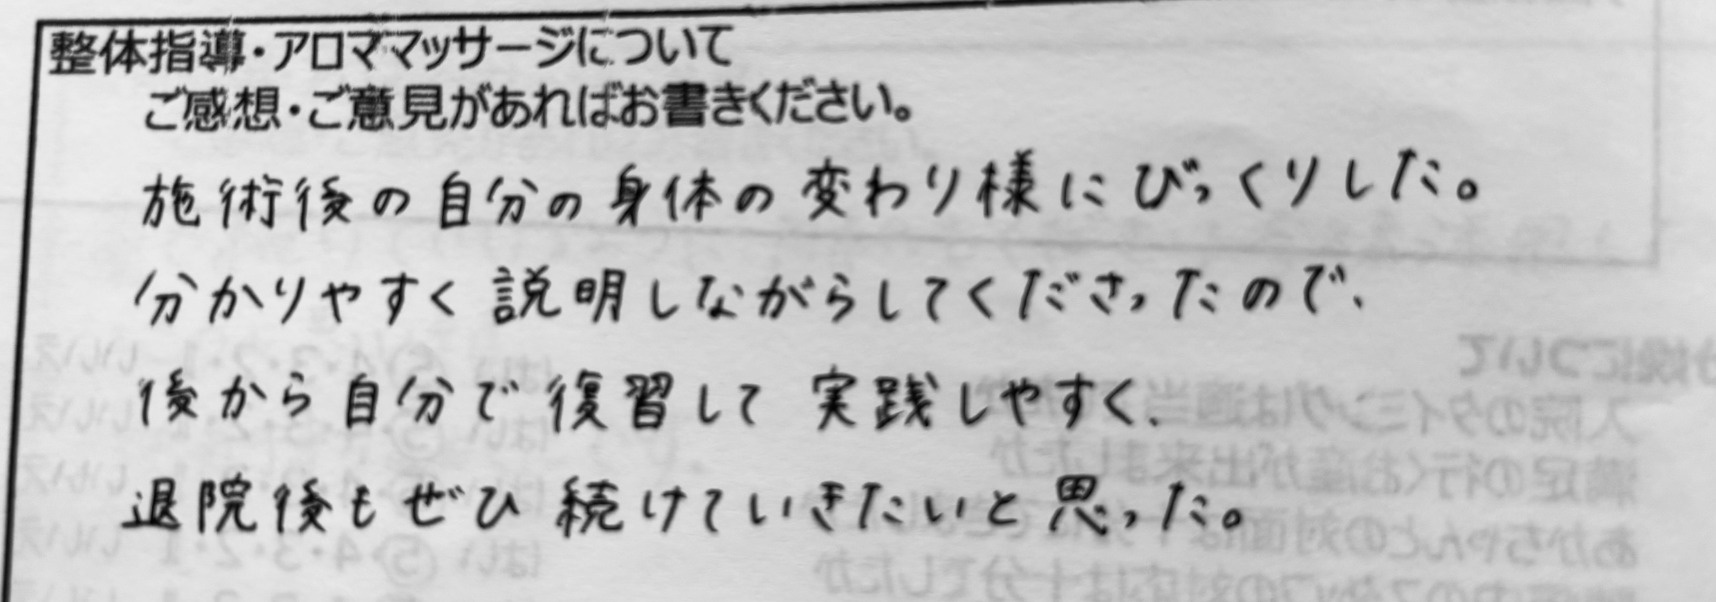 整体指導・アロママッサージについて
ご感想・ご意見があればお書きください。
施術後の自分の身体の変わり様にびっくりした。
分かりやすく説明しながらしてくださったので、
後から自分で復習して実践しやすく、
退院後もぜひ続けていきたいと思った。